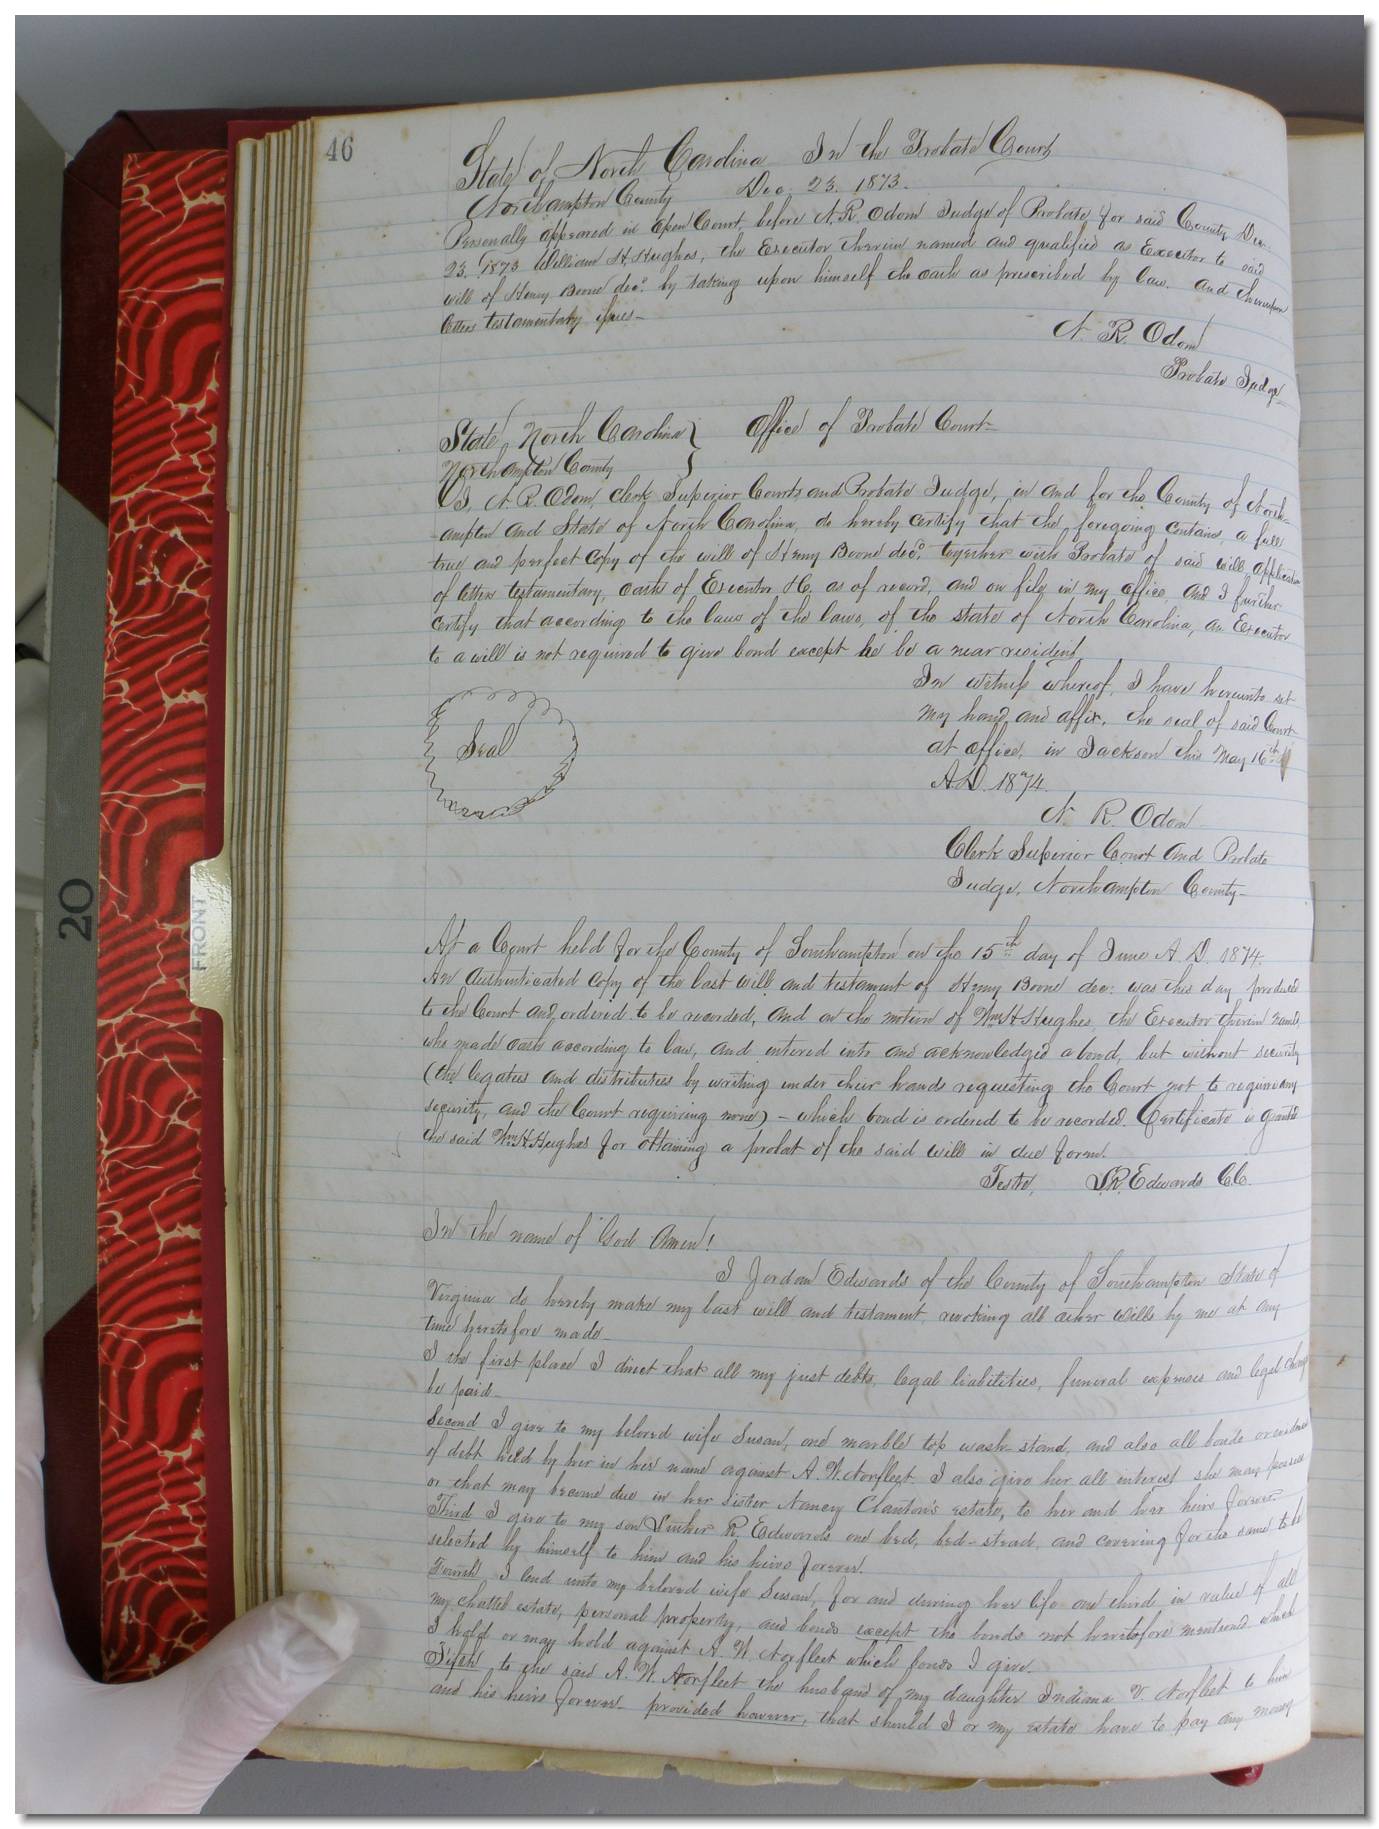 46
State of North Carolina In the Probate Court
Northampton County Dec. 23. 1873.
Personally appeared in Open Court, before N. R. Odom Judge of Probate for said County Dec.
23. 1873 William H. Hughes, the Executor therein named and qualified as Executor to said
will of Henry Boone decd. by taking upon himself the oath as prescribed by law. And thereupon
letters testamentary issues—
N. R. Odom
Probate Judge
State North Carolina } Office of Probate Court—
Northampton County }
I, N. R. Odom, Clerk Superior Courts and Probate Judge, in and for the County of North-
-ampton and State of North Carolina, do hereby certify that the foregoing contains, a full
true and perfect copy of the will of Henry Boone decd. together with Probate of said will, application
of letters testamentary, oaths of Executor &c. as of record, and on file in my office. And I further
certify that according to the laws of the laws, of the state of North Carolina, an Executor
to a will is not required to give bond except he be a near resident
In witness whereof, I have hereunto set
my hand and affix, the seal of said Court
Seal
at office, in Jackson this May 16th
A.D. 1874.
N. R. Odom
Clerk Superior Court and Probate
Judge, Northampton County—
At a Court held for the County of Southampton on the 15th day of June A. D. 1874.
An Authenticated copy of the last will and testament of Henry Boone dec: was this day produced
to the Court and ordered to be recorded, and on the motion of Wm H Hughes, the Executor therein named,
who made oath according to law, and entered into and acknowledged a bond, but without security
(the legatees and distributees by writing under their hands requesting the Court not to require any
security, and the Court requiring none) – which bond is ordered to be recorded. Certificate is granted
the said Wm H Hughes for obtaining a probat of the said will in due form.
Teste, L.R. Edwards C.C.
In the name of God Amen!
I Jordan Edwards of the County of Southampton State of
Virginia do hereby make my last will and testament, revoking all other wills by me at any
time heretofore made—
I the first place I direct that all my just debts, legal liabilities, funeral expenses and legal charges
be paid—
Second I give to my beloved wife Susan, one marble top wash-stand, and also all bonds or evidences
of debt held by her in her name against A. W. Norfleet. I also give her all interest she may possess
or that may become due in her sister Nancy Clanton's estate, to her and her heirs forever.
Third I give to my son Luther R. Edwards one bed, bed-stead, and covering for the same to be
selected by himself to him and his heirs forever.
Fourth I lend unto my beloved wife Susan, for and during her life one third in value of all
my chattel estate, personal property, and bonds except the bonds not heretofore mentioned which
I hold or may hold against A. W. Norfleet which bonds I give.
Fifth to the said A. W. Norfleet the husband of my daughter Indiana V. Norfleet to him
and his heirs forever. provided however, that should I or my estate have to pay any money
20
FRONT